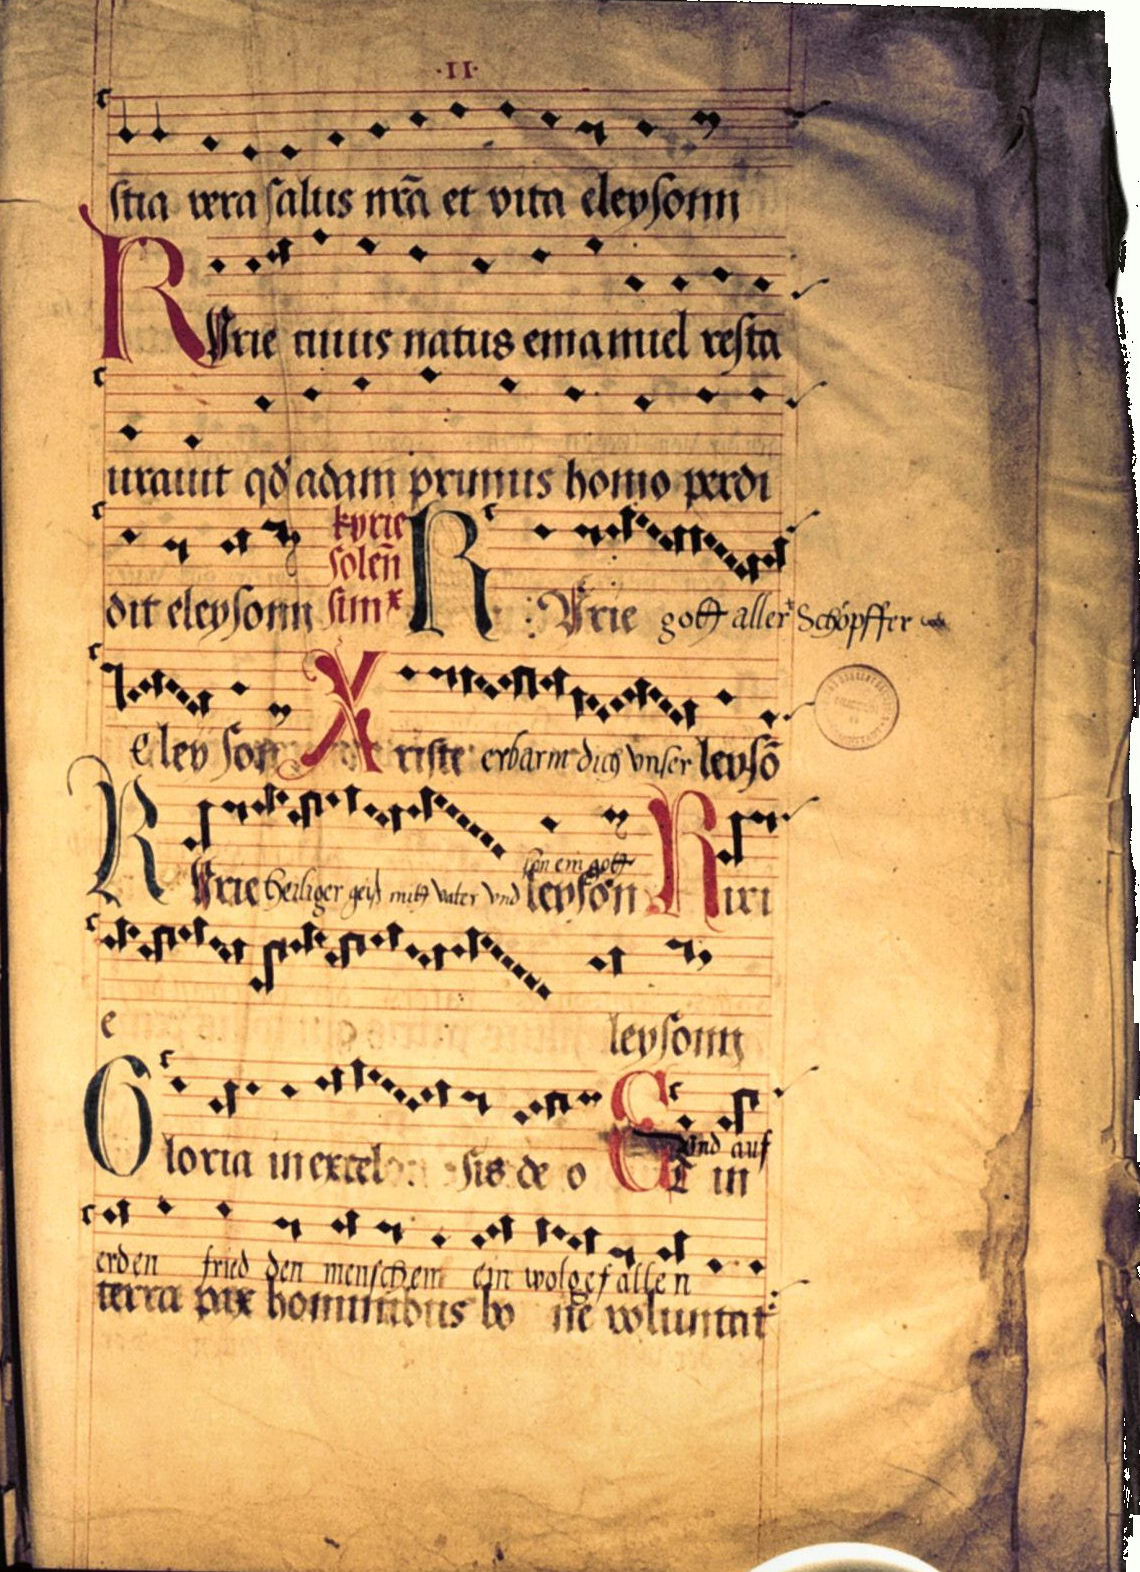 ·II·
stia vera salus nr̄a et vita eleysonn
KYrie cuius natus emanuel resta
urauit qd adam primus homo perdi
dit eleysonn kyrie solen̄ simˣ KYrie gott aller Schöpffer
Eleyson Xriste erbarm dich vnser leysō
KYrie heiliger geist mitt vater vnd son ein gott leyson Kiri
e leysonn
Gloria in excelsis deo Et in vnd auf
erden fried den menschem ein wolgefallen
terra pax hominibus bone voluntat